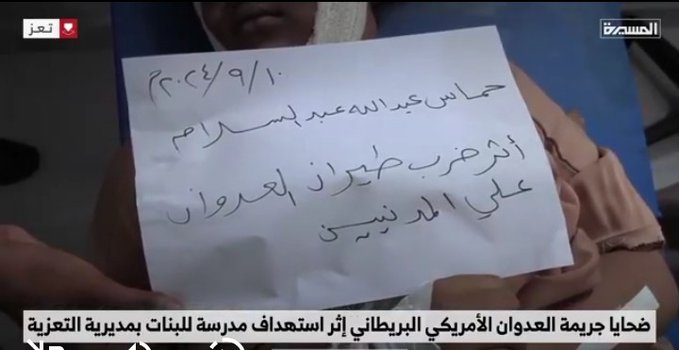 تعز
المسيرة
٢٠٢٤/٩/١٠م
حماس عبدالله عبدالسلام
أثر ضرب طيران العدوان
علي المدنيين
ضحايا جريمة العدوان الأمريكي البريطاني إثر استهداف مدرسة للبنات بمديرية التعزية